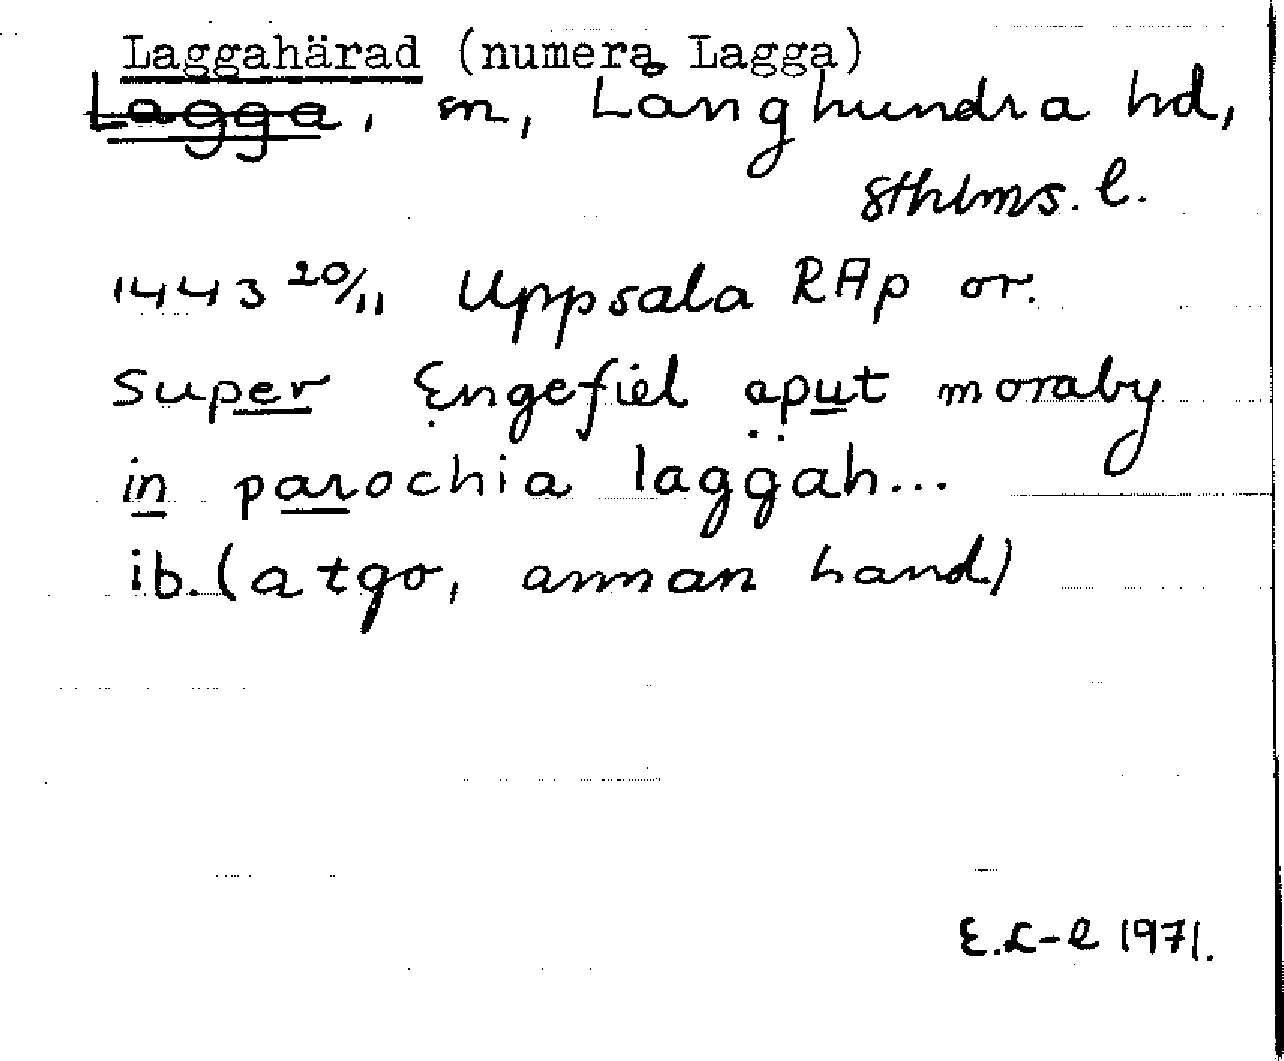 Laggahärad (numera Lagga)
Lagga, sn, Långhundra hd,
Sthlms. l.
1443 20/11 Uppsala RAp or.
super Engefiel aput moraby
in parochia laggäh...
ib. (atgo, annan hand)
E.L-e 1971.